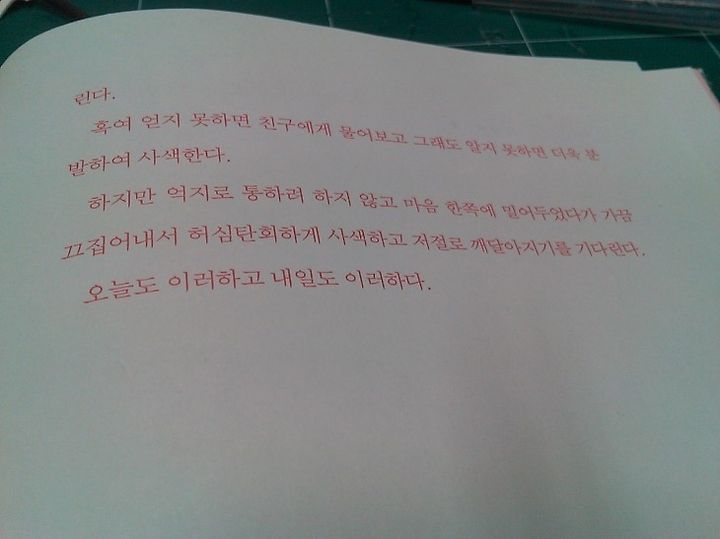 린다.
혹여 얻지 못하면 친구에게 물어보고 그래도 알지 못하면 더욱 분
발하여 사색한다.
하지만 억지로 통하려 하지 않고 마음 한쪽에 밀어두었다가 가끔
끄집어내서 허심탄회하게 사색하고 저절로 깨달아지기를 기다린다.
오늘도 이러하고 내일도 이러하다.